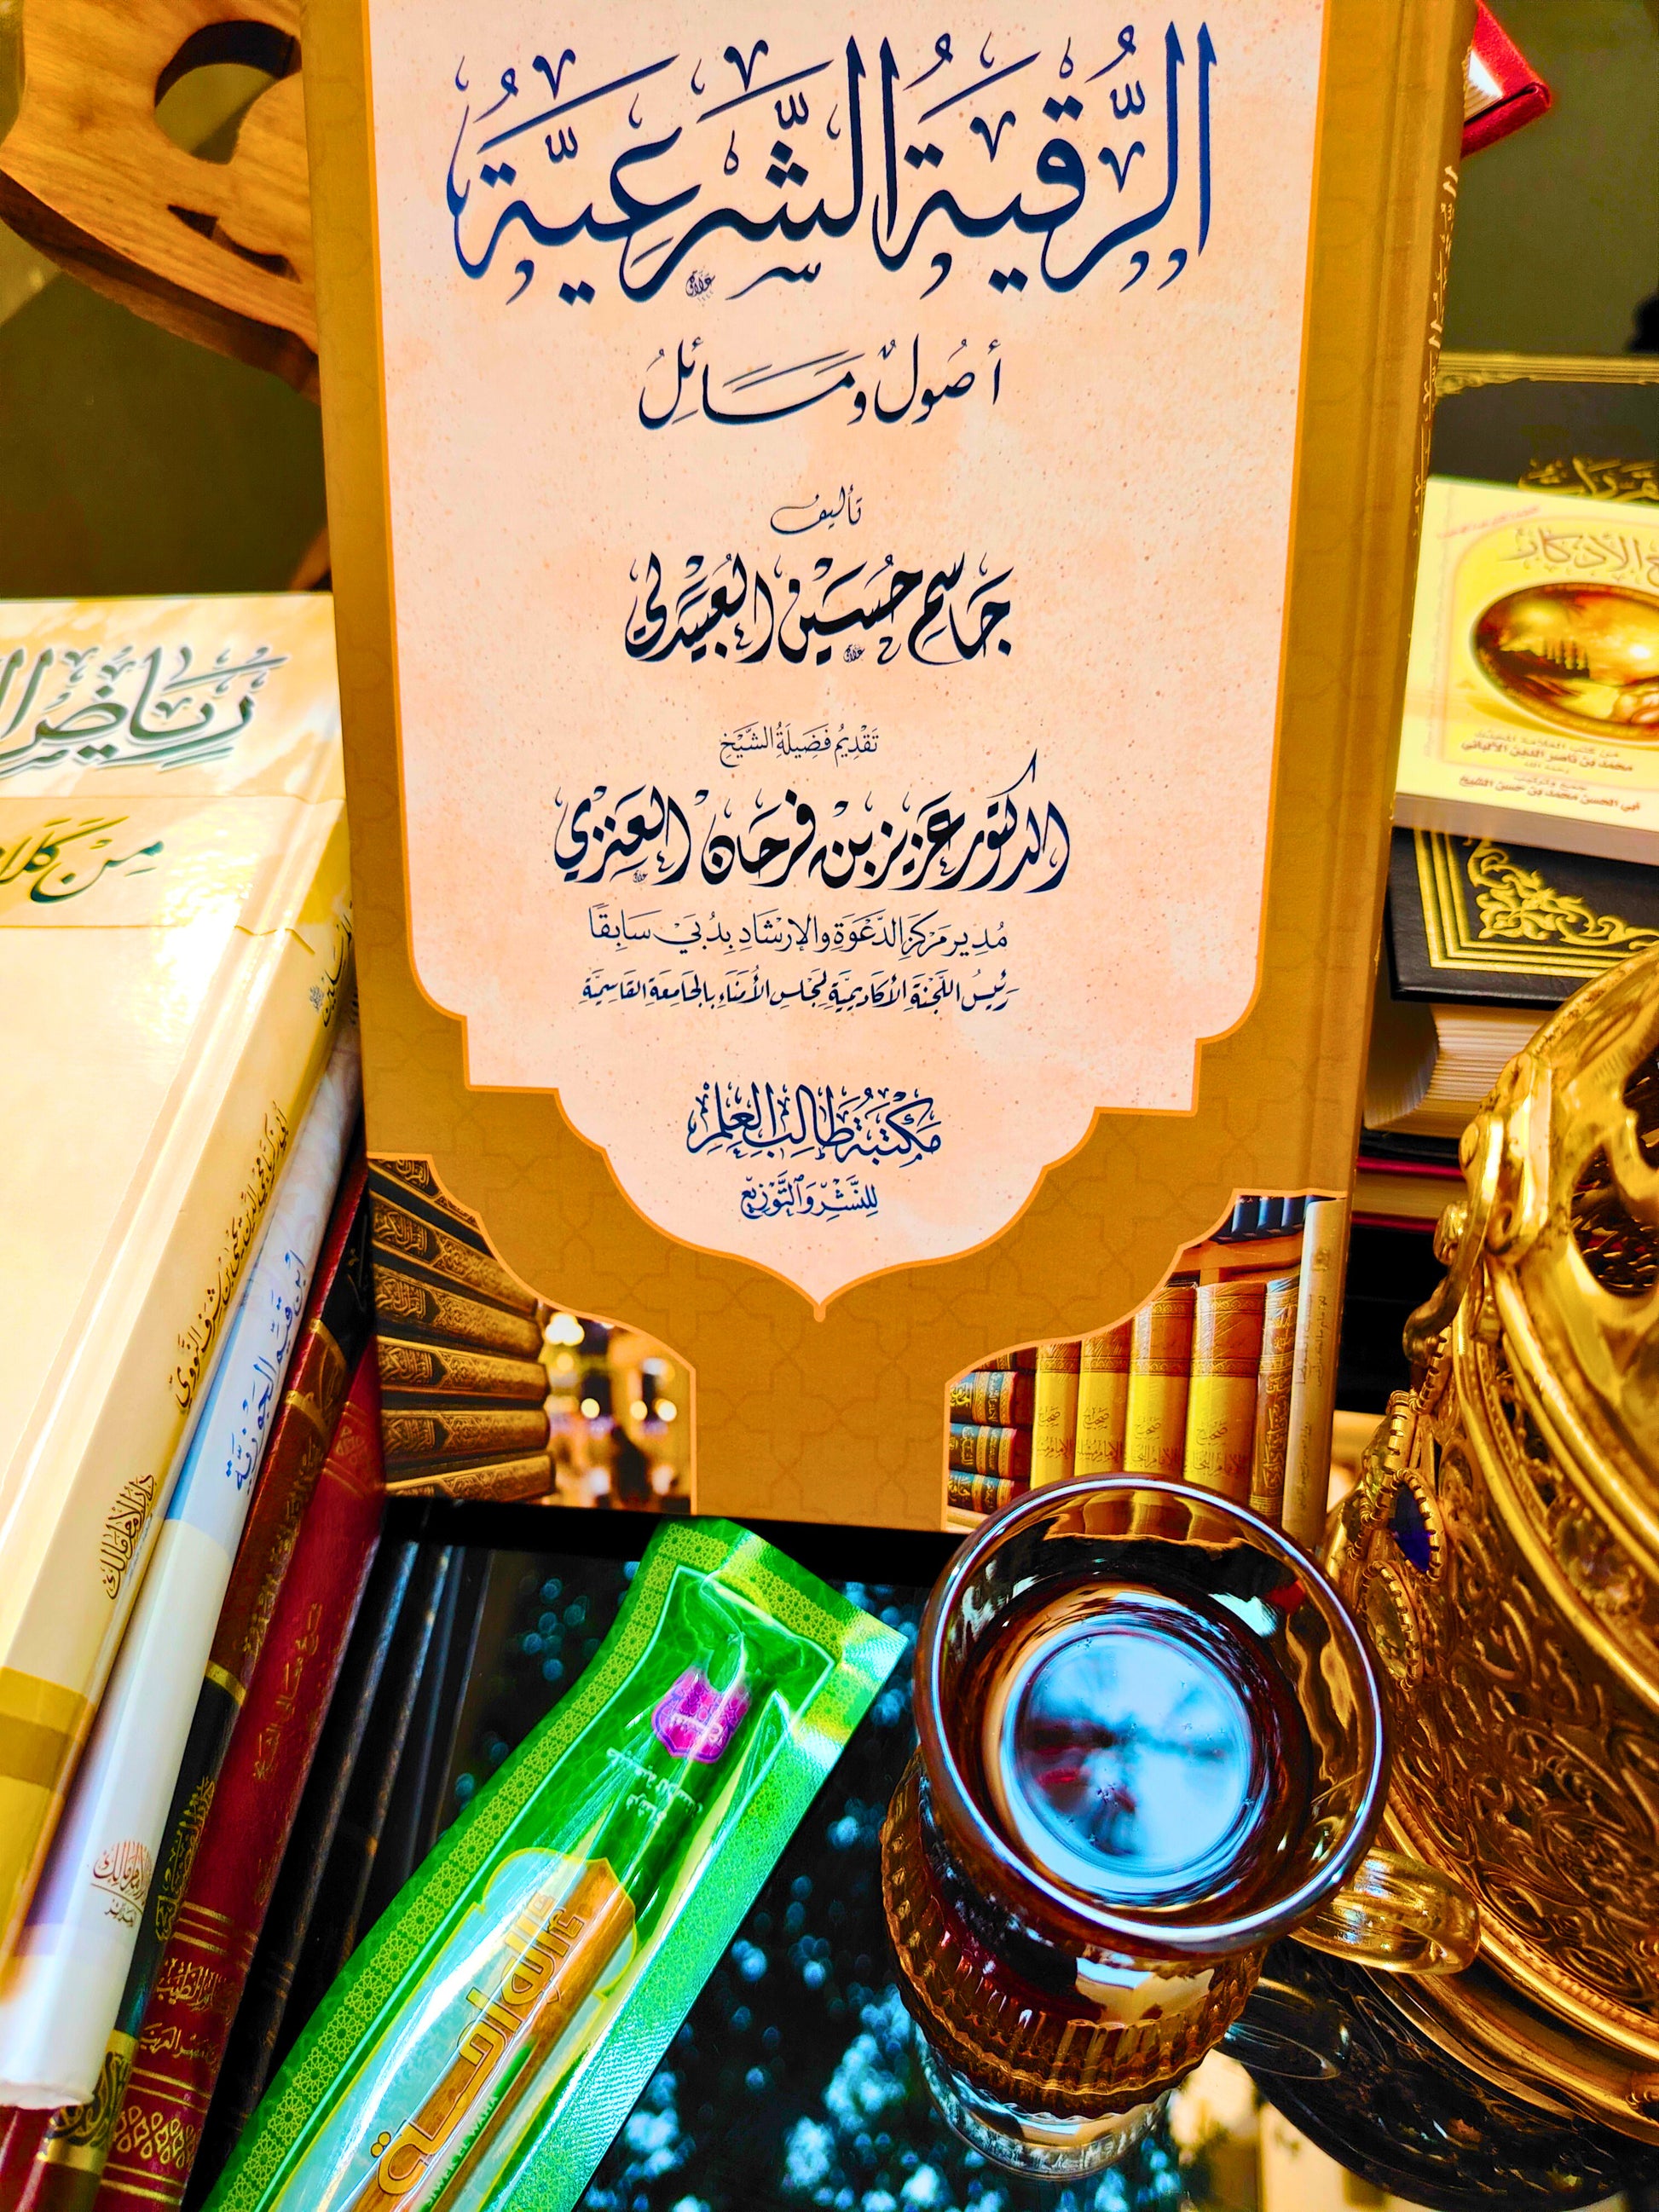 الرُّقيَةُ الشَّرعِيَّةُ
أصُولٌ ومَسَائِلُ
تأليف
جَاسِم حُسَين العُبَيْدلي
تَقْدِيمُ فَضِيلَةُ الشَّيْخِ
الدكتور عَزيز بْن فرحَان العَنزي
مُدير مَركَز الدَّعْوَة والإرْشَادِ بِدُبَيْ سَابِقًا
رَئيسُ اللَّجْنَةِ الأكَادِيميَّةِ لِمَجْلسِ الأُمَنَاءِ بِالجَامعَةِ القَاسِميَّةِ
مَكْتَبَةُ طَالِبِ العِلْمِ
لِلنَّشْرِ وَالتَّوْزِيْع
رياض
مِنْ كَلَام
الأذكار
محمد بن ناصر الدين الألباني
أبي الحسن محمد بن حسن الشيخ
يحيى بن شرف النووي
دار الإمام مالك
ابن قيم الجوزية
الواحة